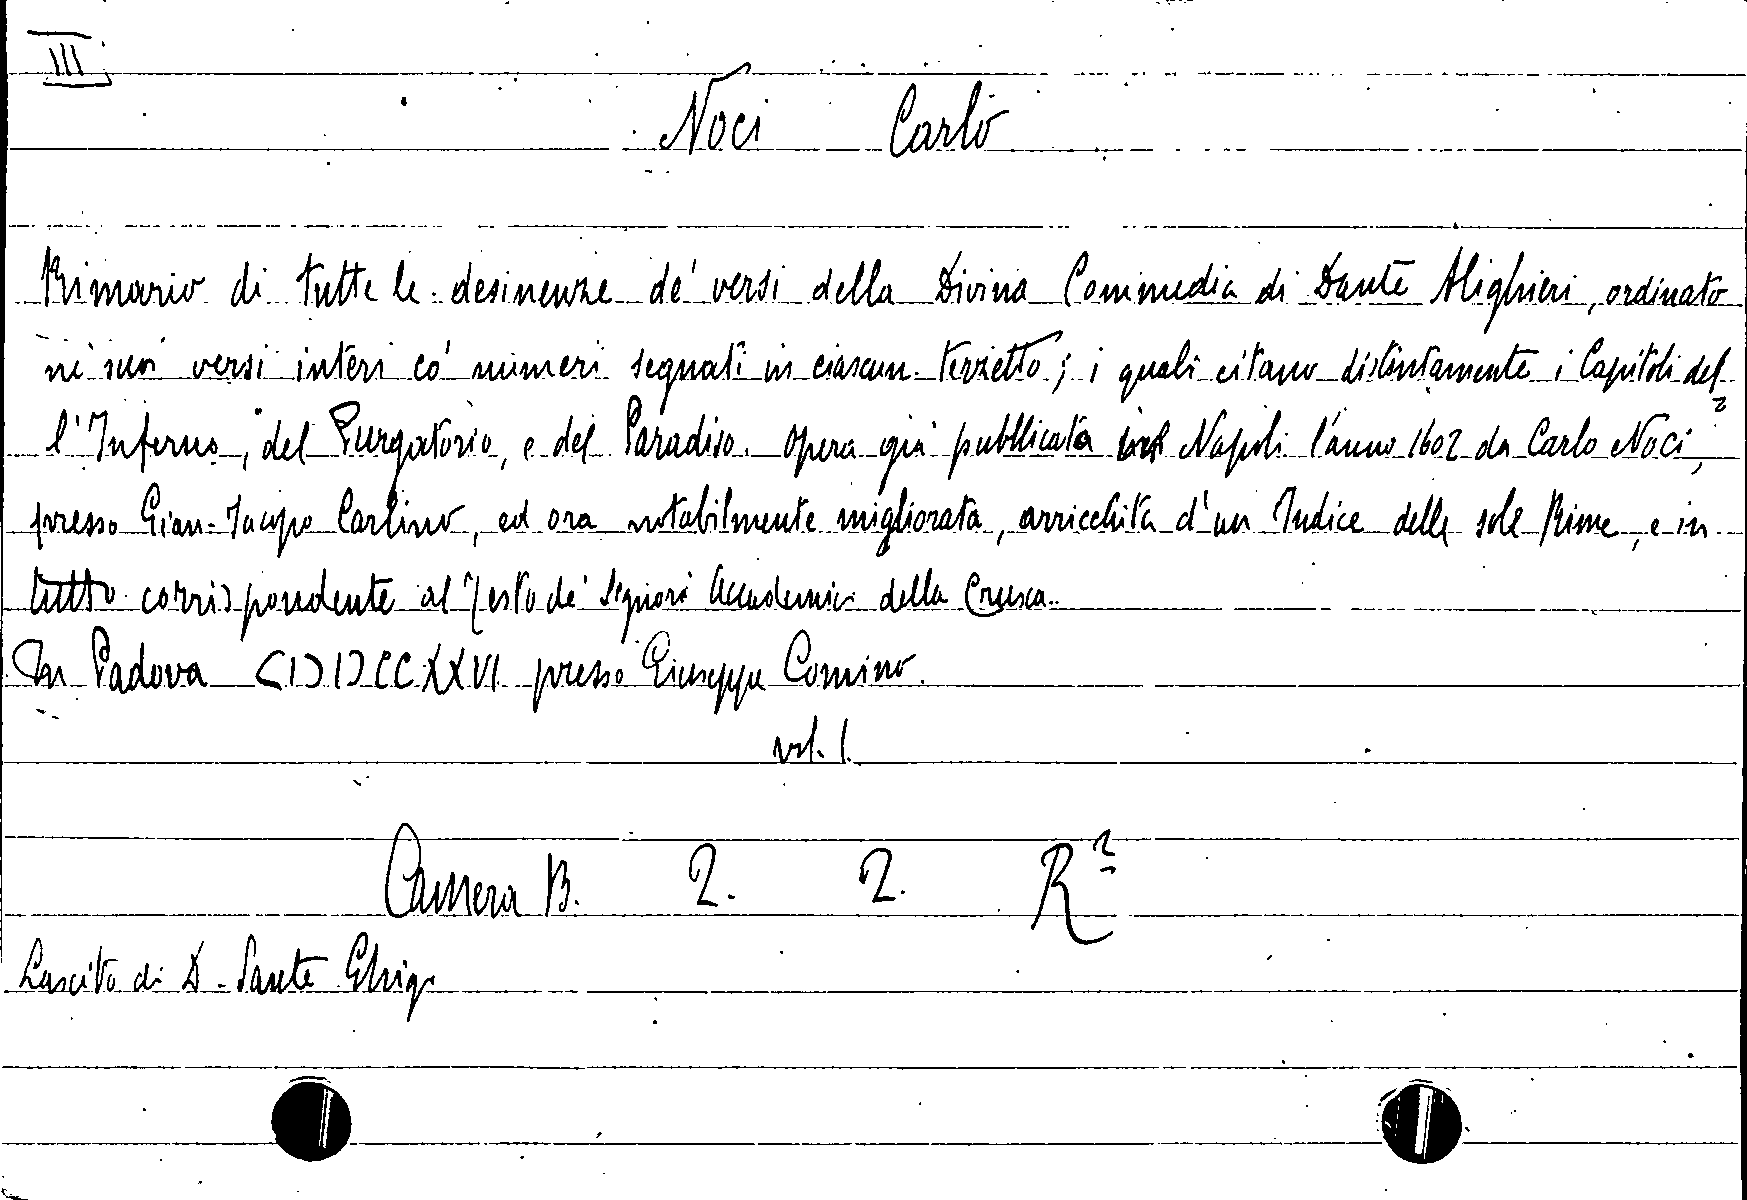 III
Noci Carlo
Rimario di tutte le desinenze de' versi della Divina Commedia di Dante Alighieri, ordinato
ne' suoi versi interi co' numeri segnati in ciascun terzetto; i quali citano distintamente i Capitoli del-
l'Inferno, del Purgatorio, e del Paradiso. Opera già pubblicata in Napoli l'anno 1602 da Carlo Noci,
presso Gian-Jacopo Carlino, ed ora notabilmente migliorata, arricchita d'un Indice delle sole Rime, e in
tutto corrispondente al Testo de' Signori Accademici della Crusca.
In Padova CIƆIƆCCXXVI presso Giuseppe Comino.
vol. 1.
Camera B. 2. 2. R²
Lascito di D. Sante Ghigi